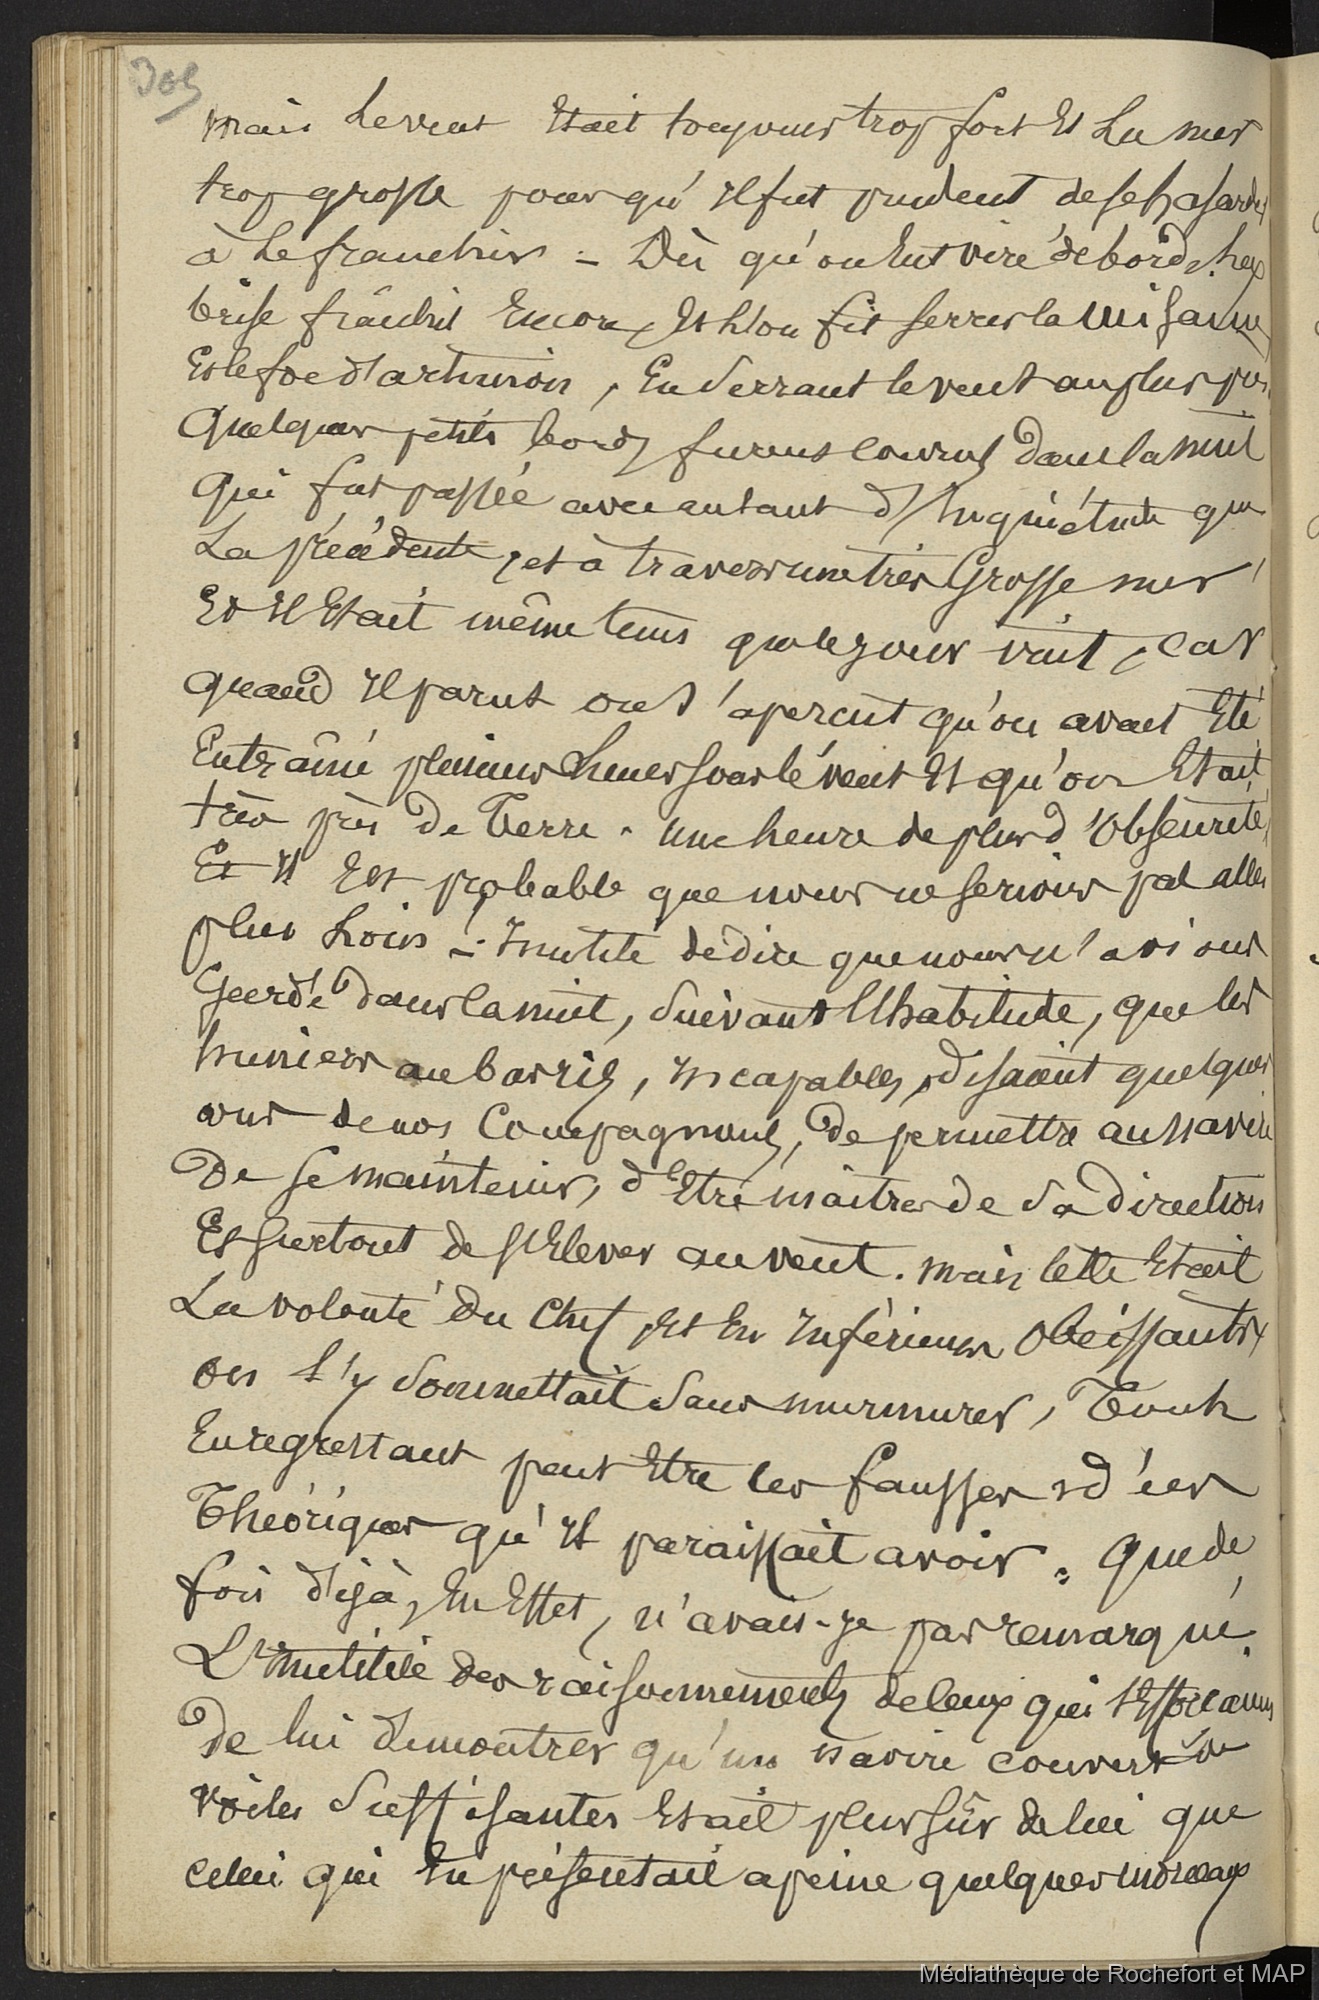 305
mais le vent Etait toujours trop fort Et La mer
trop grosse pour qu'Il fut prudent de se hasarder
à Le franchir - Dès qu'on Eut viré de bord, La
brise fraîchit Encore, Et L'on fit serrer la misaine
Et le foc d'artimon, En serrant le vent au plus près.
Quelques petits bords furent courus dans la nuit
qui fut passée avec autant d'Inquiétude que
La précédente, et à travers une très Grosse mer
Et Il Etait même tems que le jour vint, car
quand Il parut on s'aperçut qu'on avait Eté
Entraîné plusieurs Lieues sous le vent Et qu'on Etait
très près de Terre. une heure de plus d'Obscurité,
Et Il Est probable que nous ne serions pas allés
plus Loin -. Inutile de dire que nous n'avions
Gardé dans la nuit, suivant l'habitude, que les
huniers au bas ris, Incapables, disaient quelques
uns de nos Compagnons, de permettre au navire
De se maintenir, d'Etre maître de sa direction
Et surtout de s'Elever au vent. mais telle Etait
La volonté du Chef, Et En Inférieurs Obéissants,
on s'y soumettait sans murmurer, Tout
En regrettant peut Etre les fausses Idées
Théoriques qu'Il paraissait avoir. Que de
fois déjà, En Effet, n'avais-je pas remarqué
L'Inutilité des raisonnements de ceux qui s'Efforçaient
De lui démontrer qu'un navire couvert de
voiles suffisantes Etait plus sûr de lui que
celui qui En présentait a peine quelques morceaux
Médiathèque de Rochefort et MAP